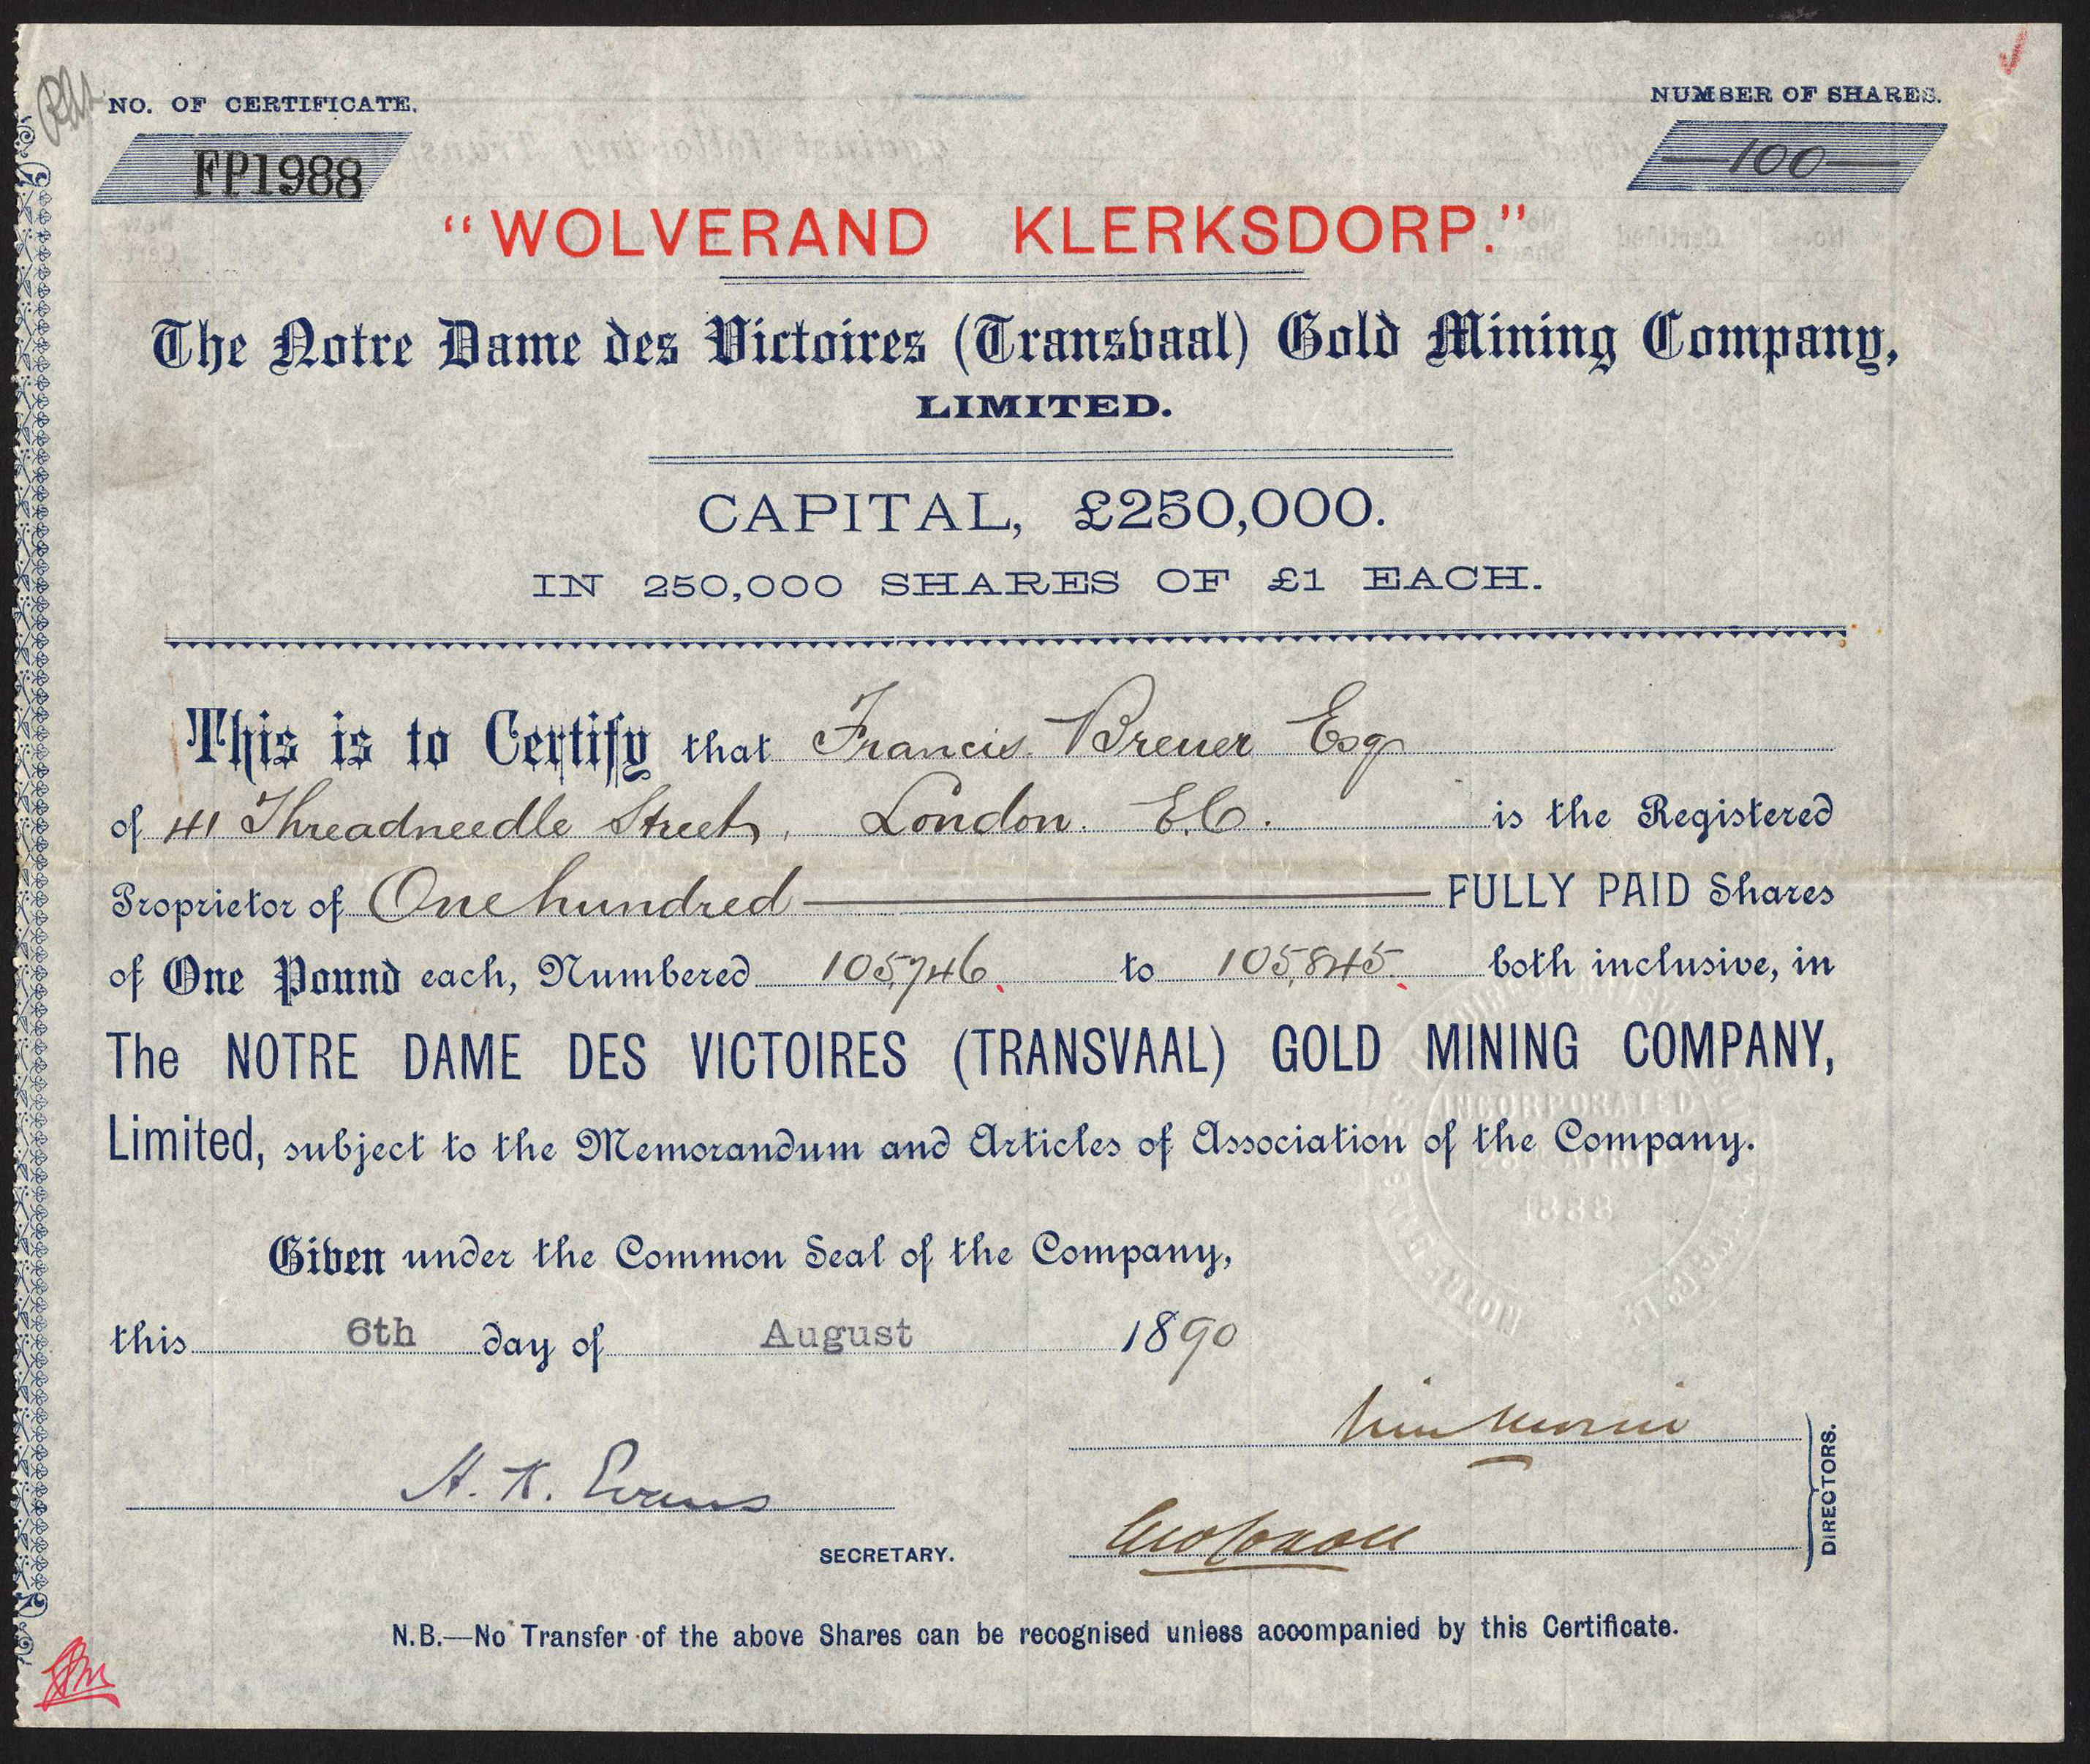 NO. OF CERTIFICATE.
NUMBER OF SHARES.
FP1988
100
"WOLVERAND KLERKSDORP."
The Notre Dame des Victoires (Transvaal) Gold Mining Company,
LIMITED.
CAPITAL, £250,000.
IN 250,000 SHARES OF £1 EACH.
This is to Certify that Francis Breuer Esqr
of 41 Threadneedle Street, London. E.C. is the Registered
Proprietor of One hundred FULLY PAID Shares
of One Pound each, Numbered 105,746 to 105,845 both inclusive, in
The NOTRE DAME DES VICTOIRES (TRANSVAAL) GOLD MINING COMPANY,
Limited, subject to the Memorandum and Articles of Association of the Company.
INCORPORATED
1888
Given under the Common Seal of the Company,
this 6th day of August 1890
A. K. Evans
SECRETARY.
DIRECTORS.
N.B.—No Transfer of the above Shares can be recognised unless accompanied by this Certificate.